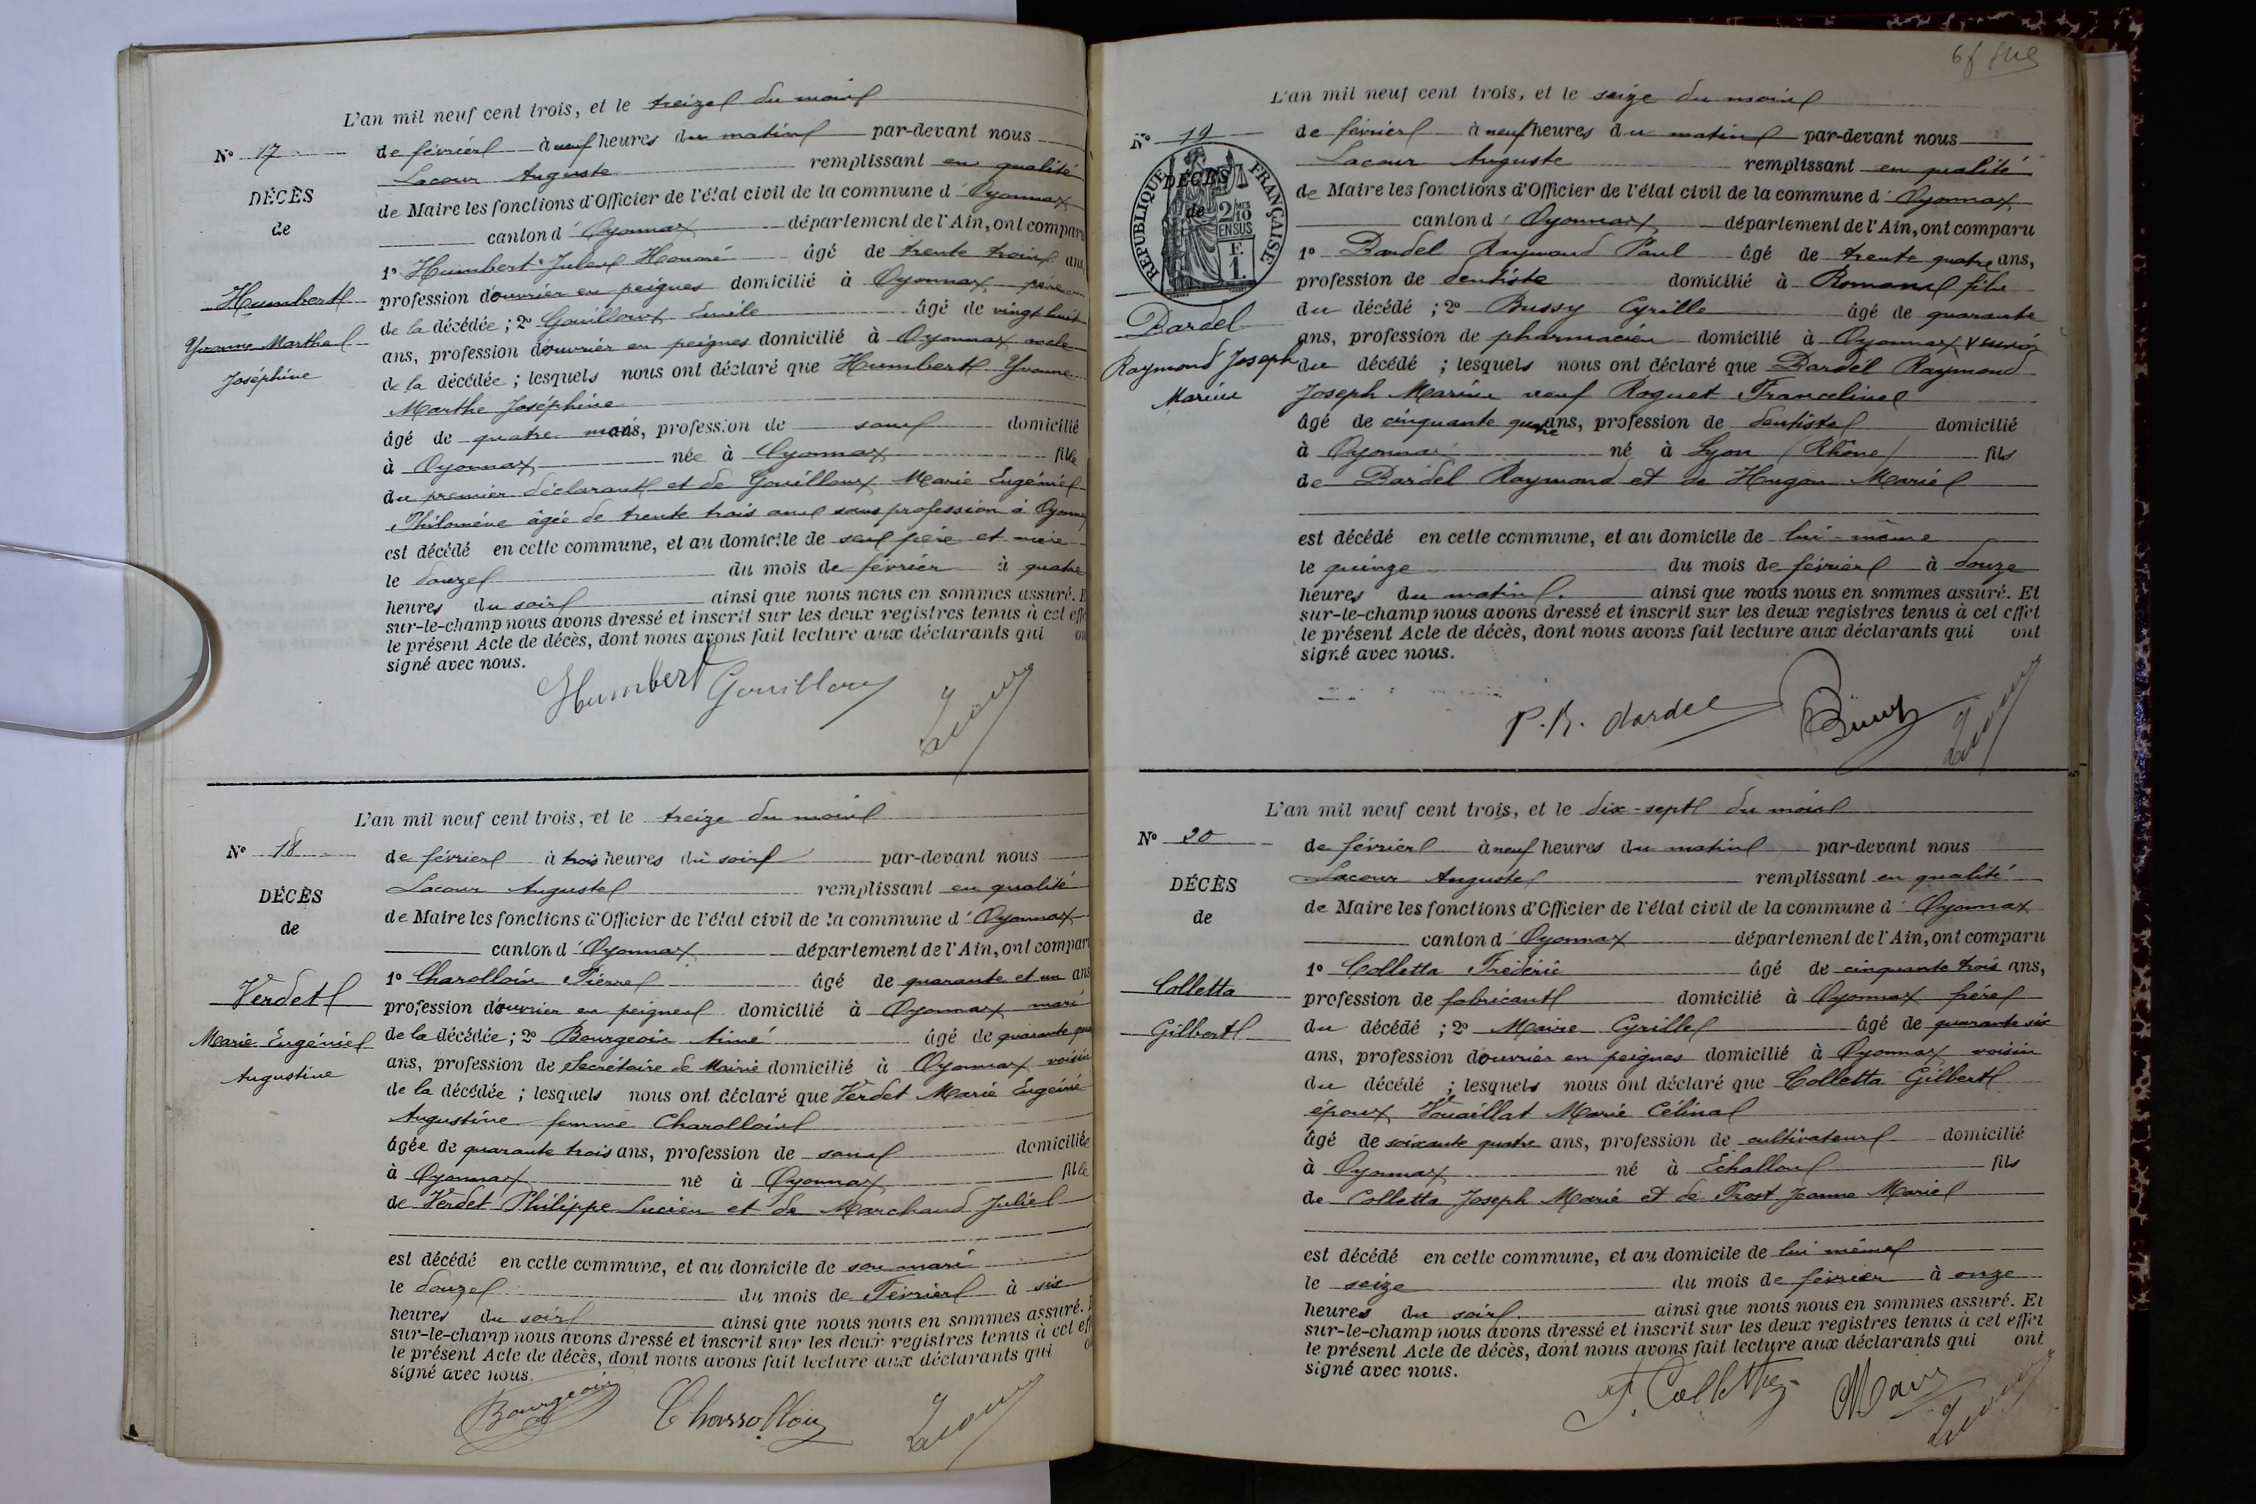 L'an mil neuf cent trois, et le treize du mois
N° 17
de février à neuf heures du matin par-devant nous
Lacour Auguste remplissant en qualité
DÉCÈS
de Maire les fonctions d'Officier de l'état civil de la commune d'Oyonnax
de
canton d'Oyonnax département de l'Ain, ont comparu
1° Humbert Jules Honoré âgé de trente trois ans,
Humbert
profession d'ouvrier en peignes domicilié à Oyonnax père
de la décédée ; 2° Gouilloux Emile âgé de vingt huit
Yvonne Marthe
ans, profession d'ouvrier en peignes domicilié à Oyonnax oncle
Joséphine
de la décédée ; lesquels nous ont déclaré que Humbert Yvonne
Marthe Joséphine
âgé de quatre mois, profession de sans domicilié
à Oyonnax née à Oyonnax fille
du premier déclarant et de Gouilloux Marie Eugénie
Philomène âgée de trente trois ans sans profession à Oyonnax
est décédé en cette commune, et au domicile de ses père et mère
le douze du mois de février à quatre
heures du soir ainsi que nous nous en sommes assuré. E
sur-le-champ nous avons dressé et inscrit sur les deux registres tenus à cet effe
le présent Acte de décès, dont nous avons fait lecture aux déclarants qui on
signé avec nous.
Humbert Gouilloux Lacour
L'an mil neuf cent trois, et le treize du mois
N° 18
de février à trois heures du soir par-devant nous
Lacour Auguste remplissant en qualité
DÉCÈS
de Maire les fonctions d'Officier de l'état civil de la commune d'Oyonnax
de
canton d'Oyonnax département de l'Ain, ont compar
1° Charolloin Pierre âgé de quarante et un ans
Verdet
profession d'ouvrier en peignes domicilié à Oyonnax mari
Marie Eugénie
de la décédée ; 2° Bourgeois Aimé âgé de quarante
Augustine
ans, profession de Secrétaire de Mairie domicilié à Oyonnax voisin
de la décédée ; lesquels nous ont déclaré que Verdet Marie Eugénie
Augustine femme Charolloin
âgée de quarante trois ans, profession de sans domiciliée
à Oyonnax né à Oyonnax fille
de Verdet Philippe Lucien et de Marchand Julie
est décédé en cette commune, et au domicile de son mari
le douze du mois de Février à six
heures du soir ainsi que nous nous en sommes assuré. E
sur-le-champ nous avons dressé et inscrit sur les deux registres tenus à cet eff
le présent Acte de décès, dont nous avons fait lecture aux déclarants qui o
signé avec nous.
Bourgeois Lacour
L'an mil neuf cent trois, et le seize du mois
N° 19
de février à neuf heures du matin par-devant nous
Lacour Auguste remplissant en qualité
DÉCÈS
de Maire les fonctions d'Officier de l'état civil de la commune d'Oyonnax
de
RÉPUBLIQUE FRANÇAISE
2/10 EN SUS
F. 1.
canton d'Oyonnax département de l'Ain, ont comparu
1° Dardel Raymond Paul âgé de trente quatre ans,
profession de dentiste domicilié à Romans fils
Dardel
du décédé ; 2° Bussy Cyrille âgé de quarante
ans, profession de pharmacien domicilié à Oyonnax voisin
Raymond Joseph
du décédé ; lesquels nous ont déclaré que Dardel Raymond
Marie
Joseph Marie veuf Roguet Franceline
âgé de cinquante quatre ans, profession de dentiste domicilié
à Oyonnax né à Lyon (Rhône) fils
de Dardel Raymond et de Hugon Marie
est décédé en cette commune, et au domicile de lui-même
le quinze du mois de février à douze
heures du matin. ainsi que nous nous en sommes assuré. Et
sur-le-champ nous avons dressé et inscrit sur les deux registres tenus à cet effet
le présent Acte de décès, dont nous avons fait lecture aux déclarants qui ont
signé avec nous.
P. R. Dardel Bussy Lacour
L'an mil neuf cent trois, et le dix-sept du mois
N° 20
de février à neuf heures du matin par-devant nous
Lacour Auguste remplissant en qualité
DÉCÈS
de Maire les fonctions d'Officier de l'état civil de la commune d'Oyonnax
de
canton d'Oyonnax département de l'Ain, ont comparu
1° Colletta Frédéric âgé de cinquante trois ans,
Colletta
profession de fabricant domicilié à Oyonnax frère
Gilbert
du décédé ; 2° Maire Cyrille âgé de quarante six
ans, profession d'ouvrier en peignes domicilié à Oyonnax voisin
du décédé ; lesquels nous ont déclaré que Colletta Gilbert
époux Vouaillat Marie Célina
âgé de soixante quatre ans, profession de cultivateur domicilié
à Oyonnax né à Echallon fils
de Colletta Joseph Marie et de Prost Jeanne Marie
est décédé en cette commune, et au domicile de lui même
le seize du mois de février à onze
heures du soir. ainsi que nous nous en sommes assuré. Et
sur-le-champ nous avons dressé et inscrit sur les deux registres tenus à cet effet
le présent Acte de décès, dont nous avons fait lecture aux déclarants qui ont
signé avec nous.
F. Colletta Maire Lacour